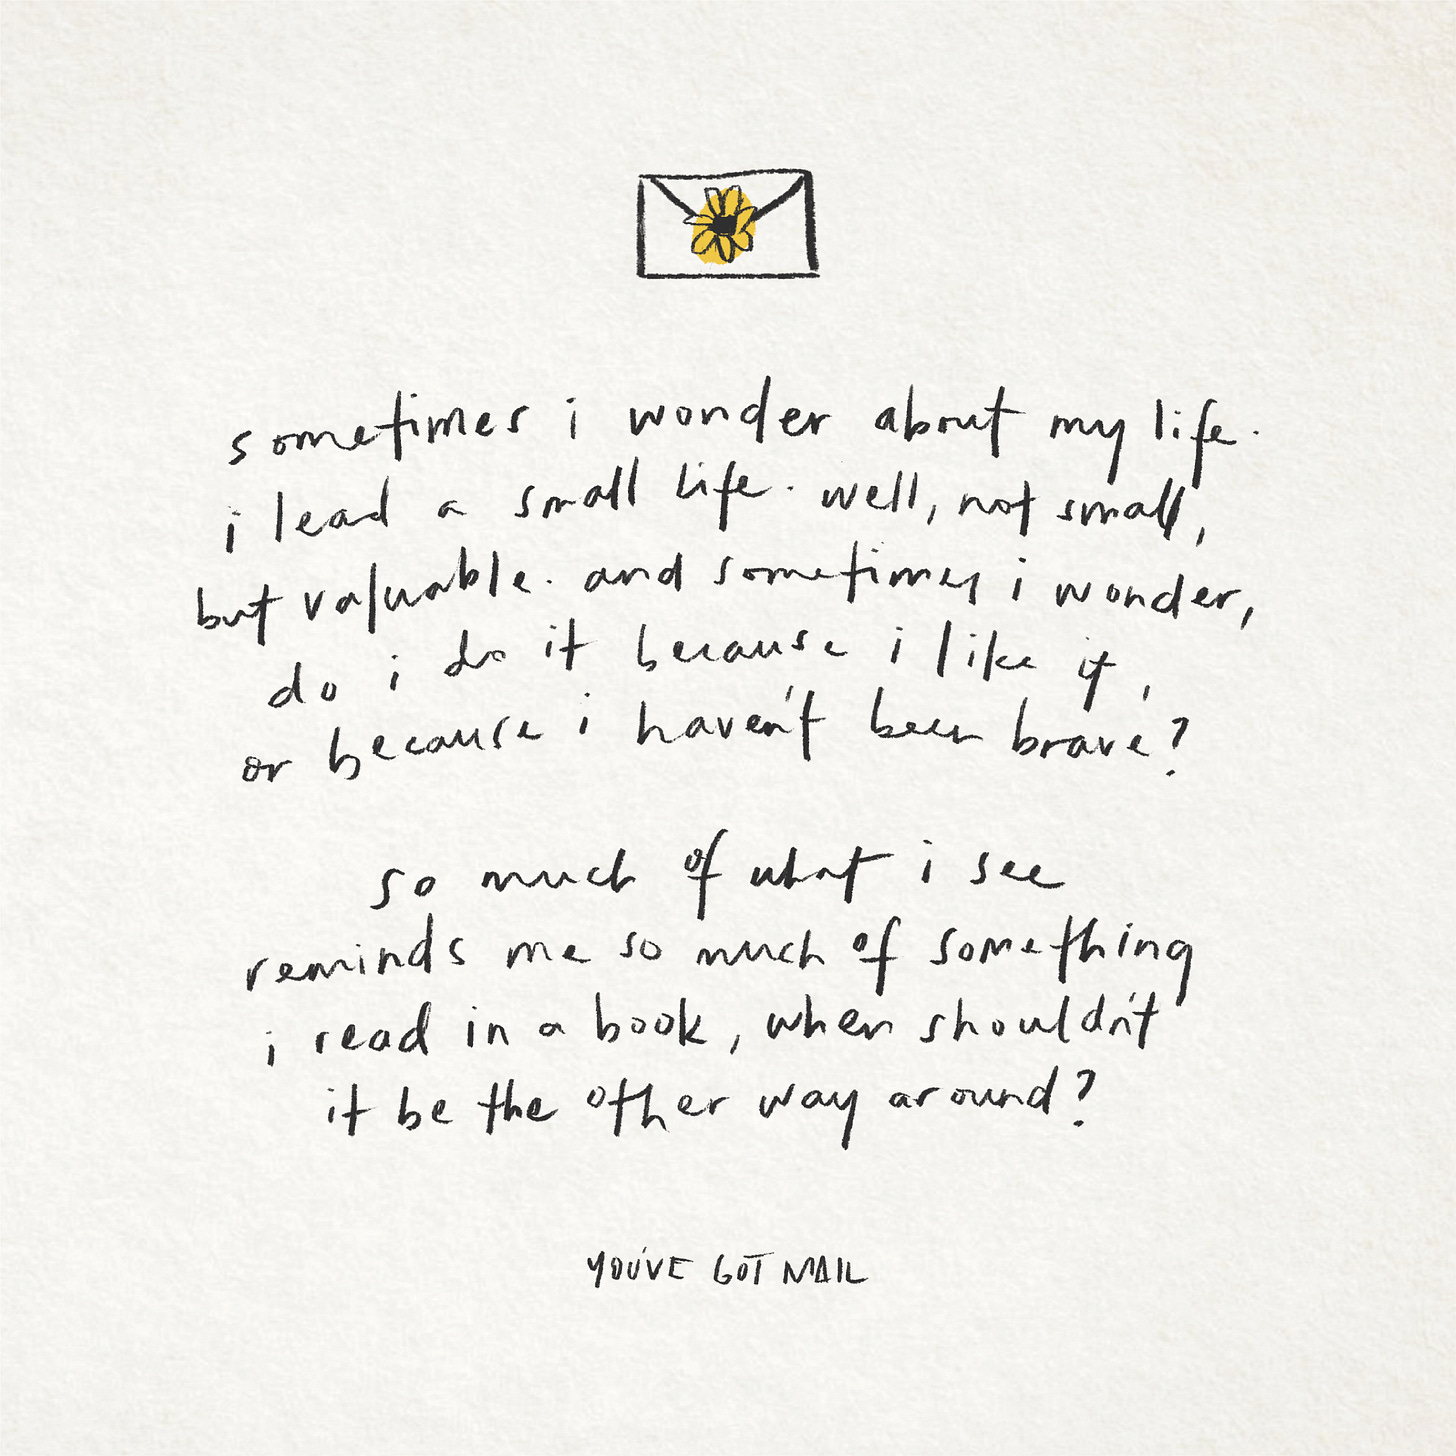 sometimes i wonder about my life.
i lead a small life. well, not small,
but valuable. and sometimes i wonder,
do i do it because i like it,
or because i haven't been brave?
so much of what i see
reminds me so much of something
i read in a book, when shouldn't
it be the other way around?
YOU'VE GOT MAIL